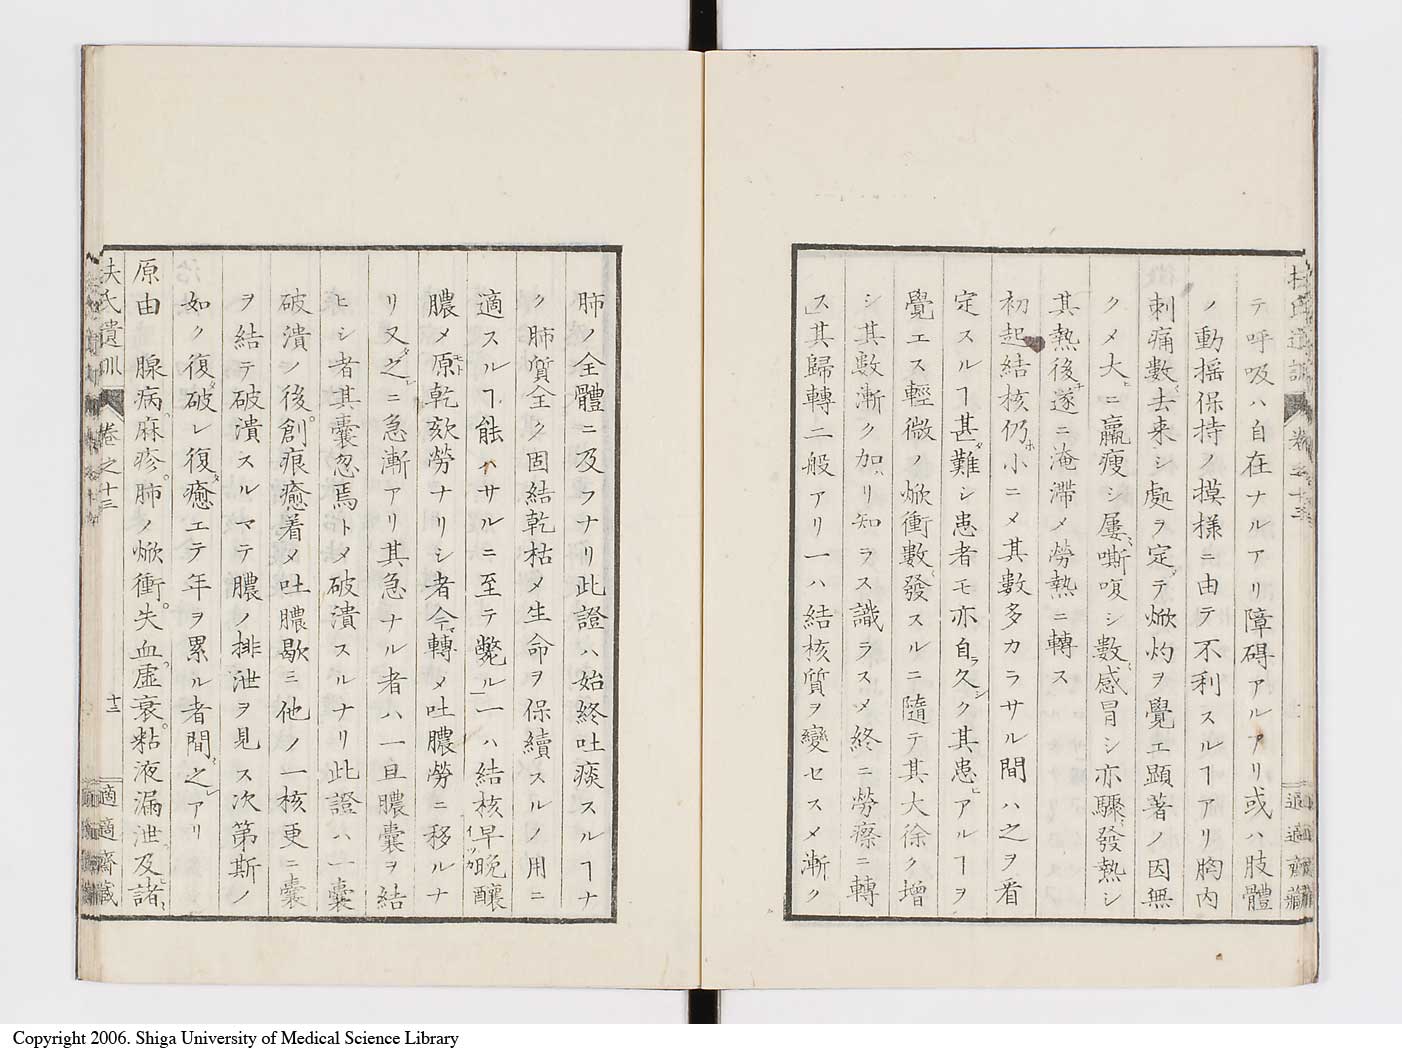 扶氏遺訓 卷之十三
適適齋藏
テ呼吸ハ自在ナルアリ障碍アルアリ或ハ肢體
ノ動揺保持ノ摸様ニ由テ不利スルヿアリ胸内
刺痛數去来シ處ヲ定テ焮灼ヲ覺エ顕著ノ因無
クメ大ニ羸瘦シ屢嘶嗄シ數感冒シ亦驟發熱シ
其熱後遂ニ淹滯メ勞熱ニ轉ス
初起結核仍小ニメ其數多カラサル間ハ之ヲ看
定スルヿ甚難シ患者モ亦自久ク其患アルヿヲ
覺エス輕微ノ焮衝數發スルニ隨テ其大徐ク増
シ其數漸ク加ハリ知ラス識ラスメ終ニ勞瘵ニ轉
ス其歸轉二般アリ一ハ結核質ヲ變セスメ漸ク
肺ノ全體ニ及フナリ此證ハ始終吐痰スルヿナ
ク肺質全ク固結乾枯メ生命ヲ保續スルノ用ニ
適スルヿ能ハサルニ至テ斃ル一ハ結核早晩釀
膿メ原乾欬勞ナリシ者今轉メ吐膿勞ニ移ルナ
リ又之ニ急漸アリ其急ナル者ハ一旦膿囊ヲ結
ヒシ者其囊忽焉トメ破潰スルナリ此證ハ一囊
破潰シ後創痕癒着メ吐膿歇ミ他ノ一核更ニ囊
ヲ結テ破潰スルマテ膿ノ排泄ヲ見ス次第斯ノ
如ク復破レ復癒エテ年ヲ累ル者間之アリ
原由 腺病麻疹肺ノ焮衝失血虚衰粘液漏泄及諸
扶氏遺訓 卷之十三 十三 適適齋藏
Copyright 2006. Shiga University of Medical Science Library